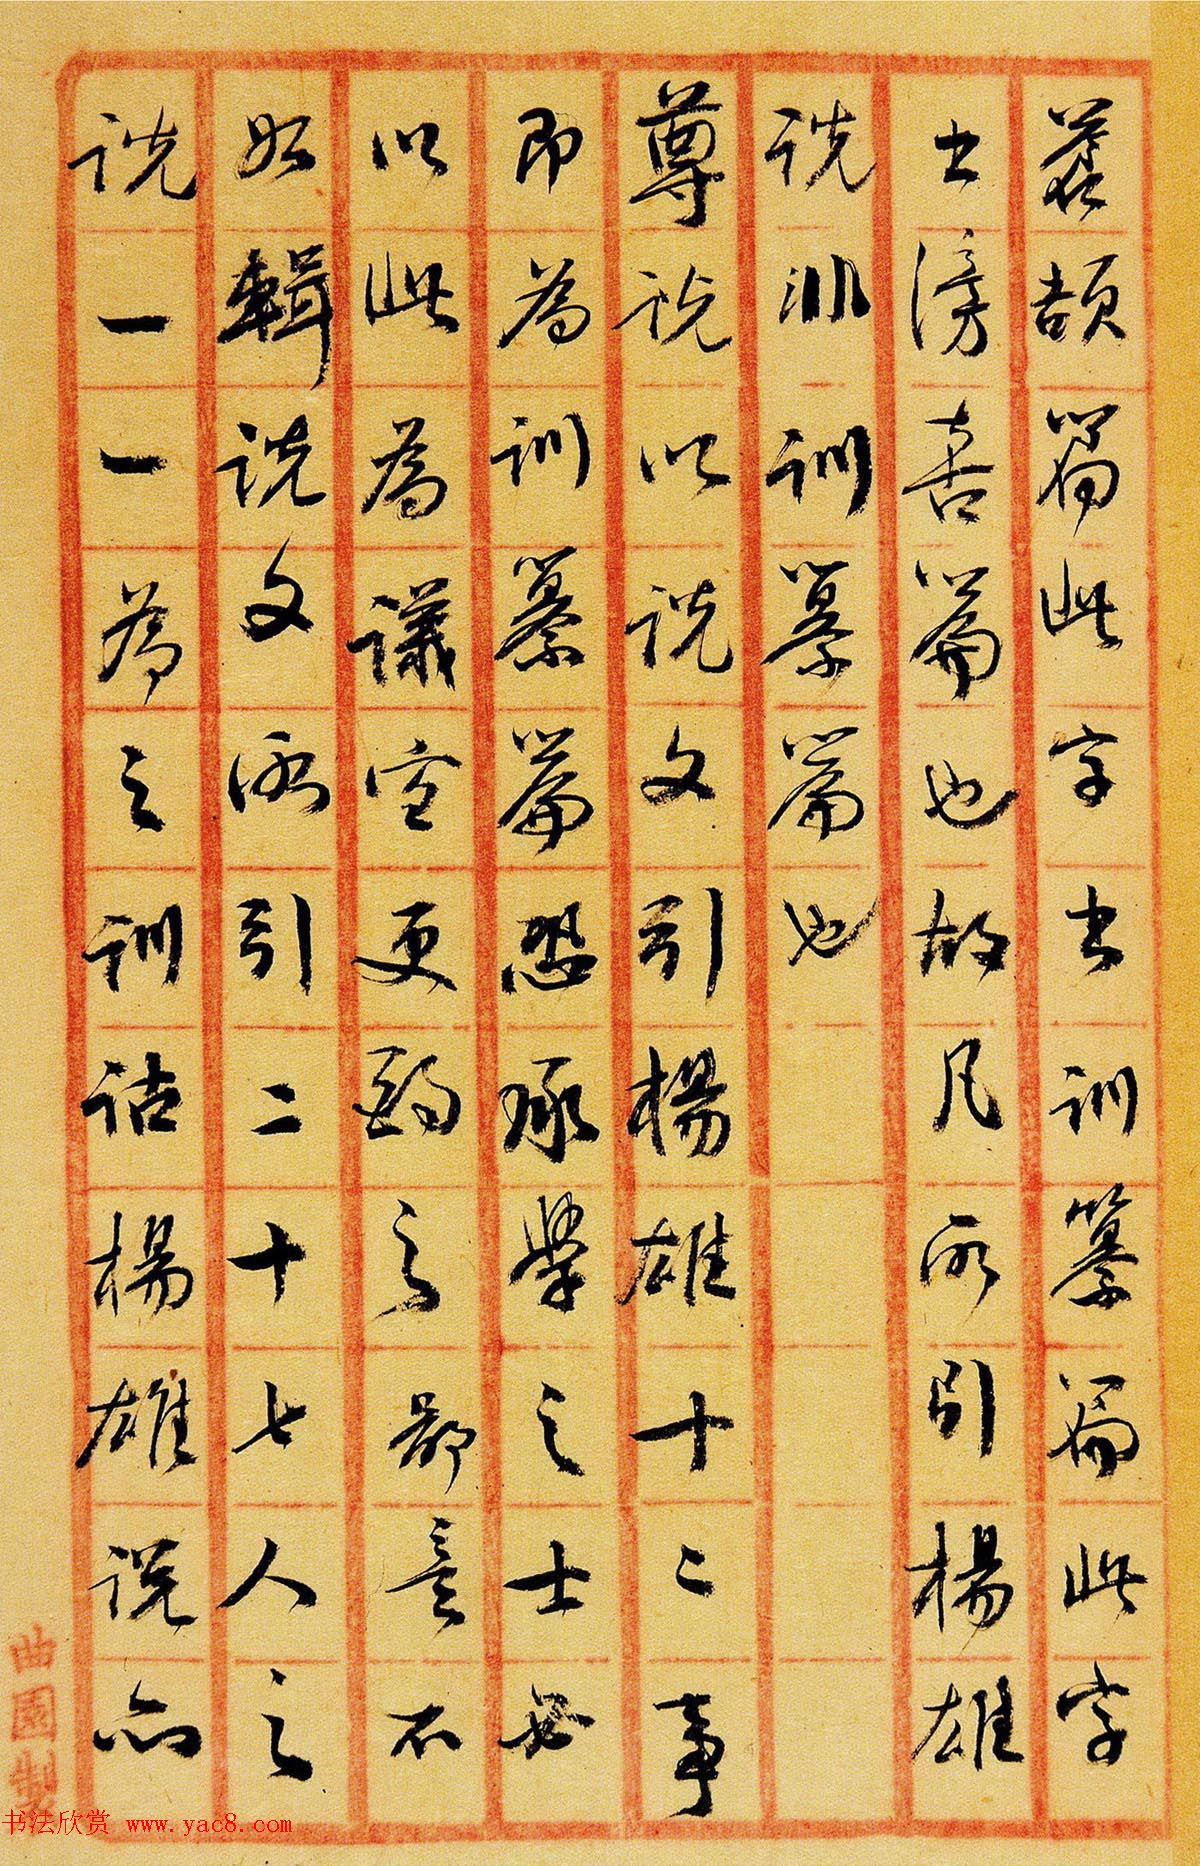 蒼頡篇此字出訓纂篇此字
出滂喜篇也故凡所引楊雄
說非訓纂篇也
尊說以說文引楊雄十二事
即為訓纂篇恐承學之士必
以此為議宜更酌之鄙意不
如輯說文所引二十七人之
說一一為之訓詁楊雄說亦
曲園製
书法欣赏 www.yac8.com